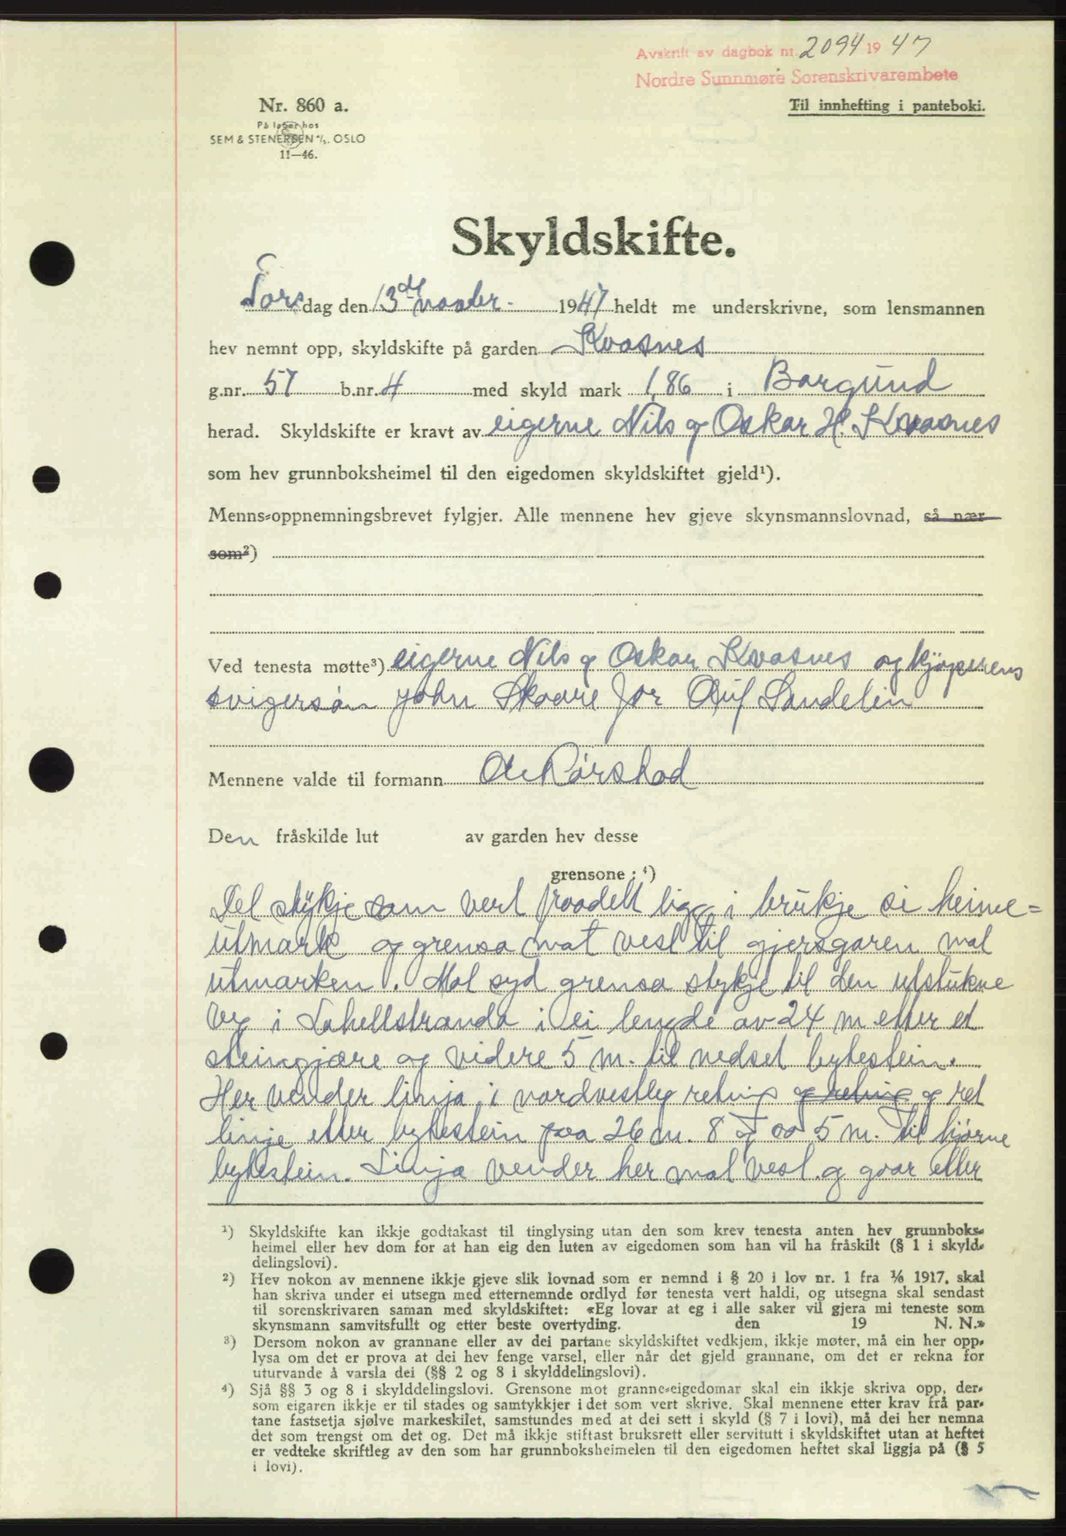 Avskrift av dagbok nr. 2094 19 47
Nordre Sunnmøre Sorenskrivarembete
Nr. 860 a.
På lager hos
SEM & STENERSEN A/S. OSLO
11—46.
Til innhefting i panteboki.
Skyldskifte.
Tors dag den 13de novbr. 1947 heldt me underskrivne, som lensmannen
hev nemnt opp, skyldskifte på garden Kvasnes
g.nr. 57 b.nr. 4 med skyld mark 1,86 i Borgund
herad. Skyldskifte er kravt av eigerne Nils og Oskar H. Kvasnes
som hev grunnboksheimel til den eigedomen skyldskiftet gjeld¹).
Menns-oppnemningsbrevet fylgjer. Alle mennene hev gjeve skynsmannslovnad, så nær
som²)
Ved tenesta møtte³) eigerne Nils og Oskar Kvasnes og kjøperens
svigersøn John Skaare for Sandelin
Mennene valde til formann
Den fråskilde lut av garden hev desse
grensone: ⁴)
Del stykje som vert fraadelt ligg i brukje si heime=
utmark og grensa mot vest til gjersgaren mot
utmarken. Mot syd grensa stykje til den utstukne
veg i i ei lengde av 24 m etter et
steingjære og videre 5 m. til nedset bytestein.
Her vender linja i nordvestleg retning og retning og ret
linje etter bytestein paa 26 m. 8 og 5 m. til hjørne
bytestein. Linja vender her mot vest og gaar etter
¹) Skyldskifte kan ikkje godtakast til tinglysing utan den som krev tenesta anten hev grunnboks-
heimel eller hev dom for at han eig den luten av eigedomen som han vil ha fråskilt (§ 1 i skyld-
delingslovi).
²) Hev nokon av mennene ikkje gjeve slik lovnad som er nemnd i § 20 i lov nr. 1 fra 1/6 1917, skal
han skriva under ei utsegn med etternemnde ordlyd før tenesta vert haldi, og utsegna skal sendast
til sorenskrivaren saman med skyldskiftet: «Eg lovar at eg i alle saker vil gjera mi teneste som
skynsmann samvitsfullt og etter beste overtyding. den 19 N. N.»
³) Dersom nokon av grannane eller av dei partane skyldskiftet vedkjem, ikkje møter, må ein her opp-
lysa om det er prova at dei hev fenge varsel, eller når det gjeld grannane, om det er rekna for
uturvande å varsla dei (§§ 2 og 8 i skylddelingslovi).
⁴) Sjå §§ 3 og 8 i skylddelingslovi. Grensone mot granne-eigedomar skal ein ikkje skriva opp, der-
som eigaren ikkje er til stades og samtykkjer i det som vert skrive. Skal mennene etter krav frå par-
tane fastsetja sjølve markeskilet, samstundes med at dei sett i skyld (§ 7 i lovi), må dei her nemna
det som trengst om det og. Det må ikkje stiftast bruksrett eller servitutt i skyldskiftet utan at heftet
er vedteke skriftleg av den som har grunnboksheimelen til den eigedomen heftet skal liggja på (§ 5
i lovi).